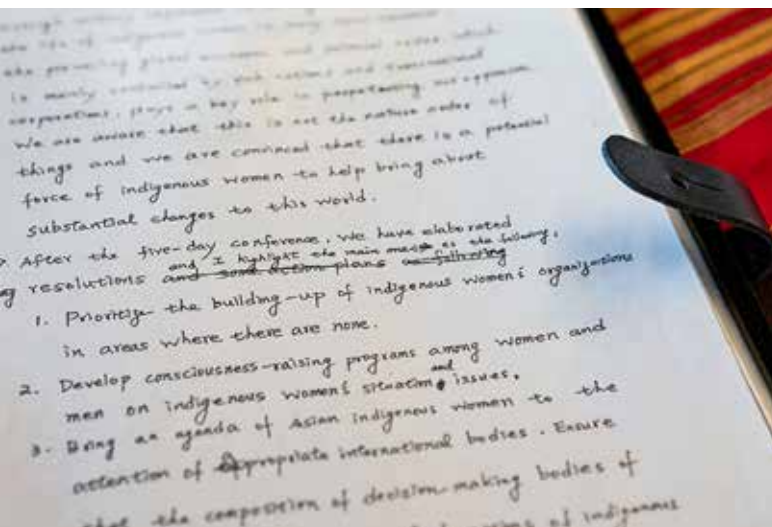 the life of indigenous women
the prevailing global economic and political order which
is mainly controlled by rich nations and transnational
corporations, plays a key role in perpetuating our oppression
We are aware that this is not the nature order of
things and we are convinced that there is a potential
force of indigenous women to help bring about
substantial changes to this world.
After the five-day conference, we have elaborated
and I highlight the main as the following,
resolutions and some action plans as following
1. Prioritize the building-up of indigenous women's organizations
in areas where there are none.
2. Develop consciousness-raising programs among women and
men on indigenous women's situation and issues.
3. Bring an agenda of Asian indigenous women to the
attention of appropriate international bodies. Ensure
that the composition of decision-making bodies of
of indigenous